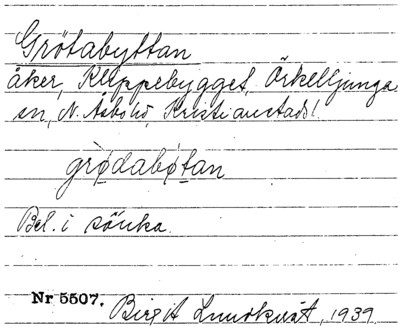 Grötabyttan
åker, Klippebygget, Örkelljunga
sn, N. Åsbo hd, Kristianstads l.
grø̀dabøtan
Bel. i sänka.
Nr 5507. Birgit Lundkvist, 1939